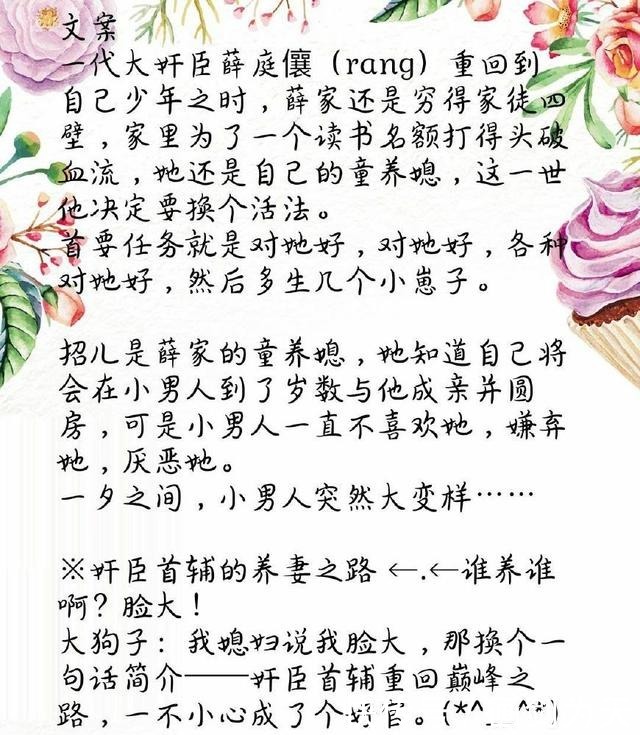 文案
一代大奸臣薛庭儴（rang）重回到
自己少年之时，薛家还是穷得家徒四
壁，家里为了一个读书名额打得头破
血流，她还是自己的童养媳，这一世
他决定要换个活法。
首要任务就是对她好，对她好，各种
对她好，然后多生几个小崽子。
招儿是薛家的童养媳，她知道自己将
会在小男人到了岁数与他成亲并圆
房，可是小男人一直不喜欢她，嫌弃
她，厌恶她。
一夕之间，小男人突然大变样……
※奸臣首辅的养妻之路 ←.←谁养谁
啊？脸大！
大狗子：我媳妇说我脸大，那换个一
句话简介——奸臣首辅重回巅峰之
路，一不小心成了个好官。(*^__^*)